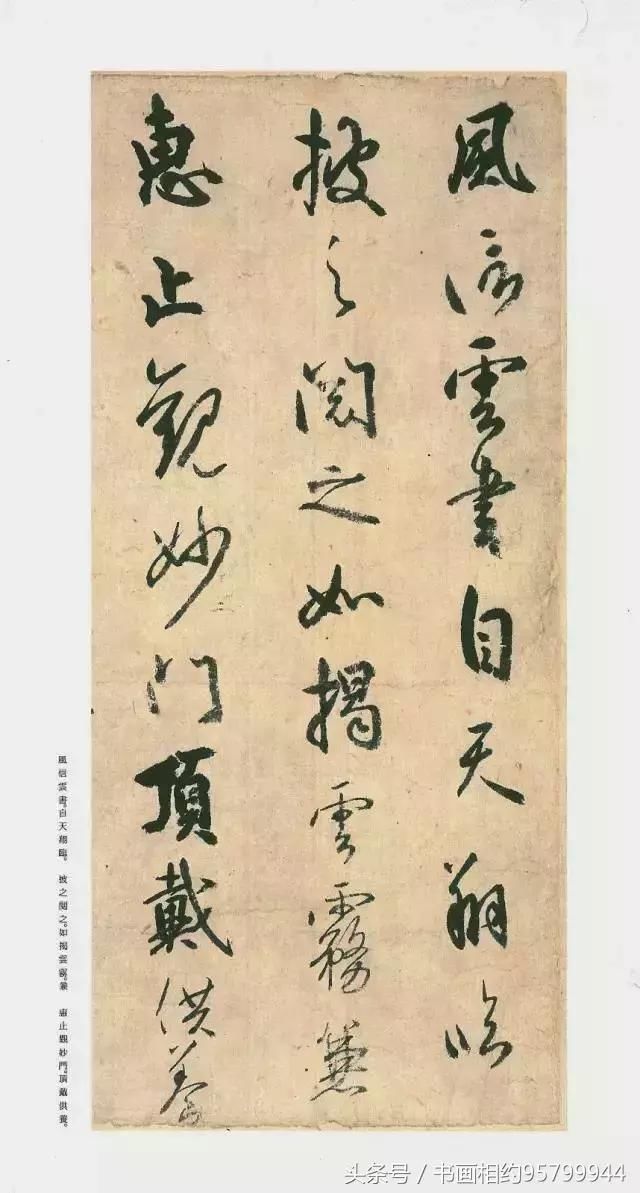 風信雲書自天翔臨
披之閱之如揭雲霧兼
惠止觀妙門頂戴供養
風信雲書。自天翔臨。 披之閱之。如揭雲霧。兼 惠止觀妙門。頂戴供養。
头条号 / 书画相约95799944